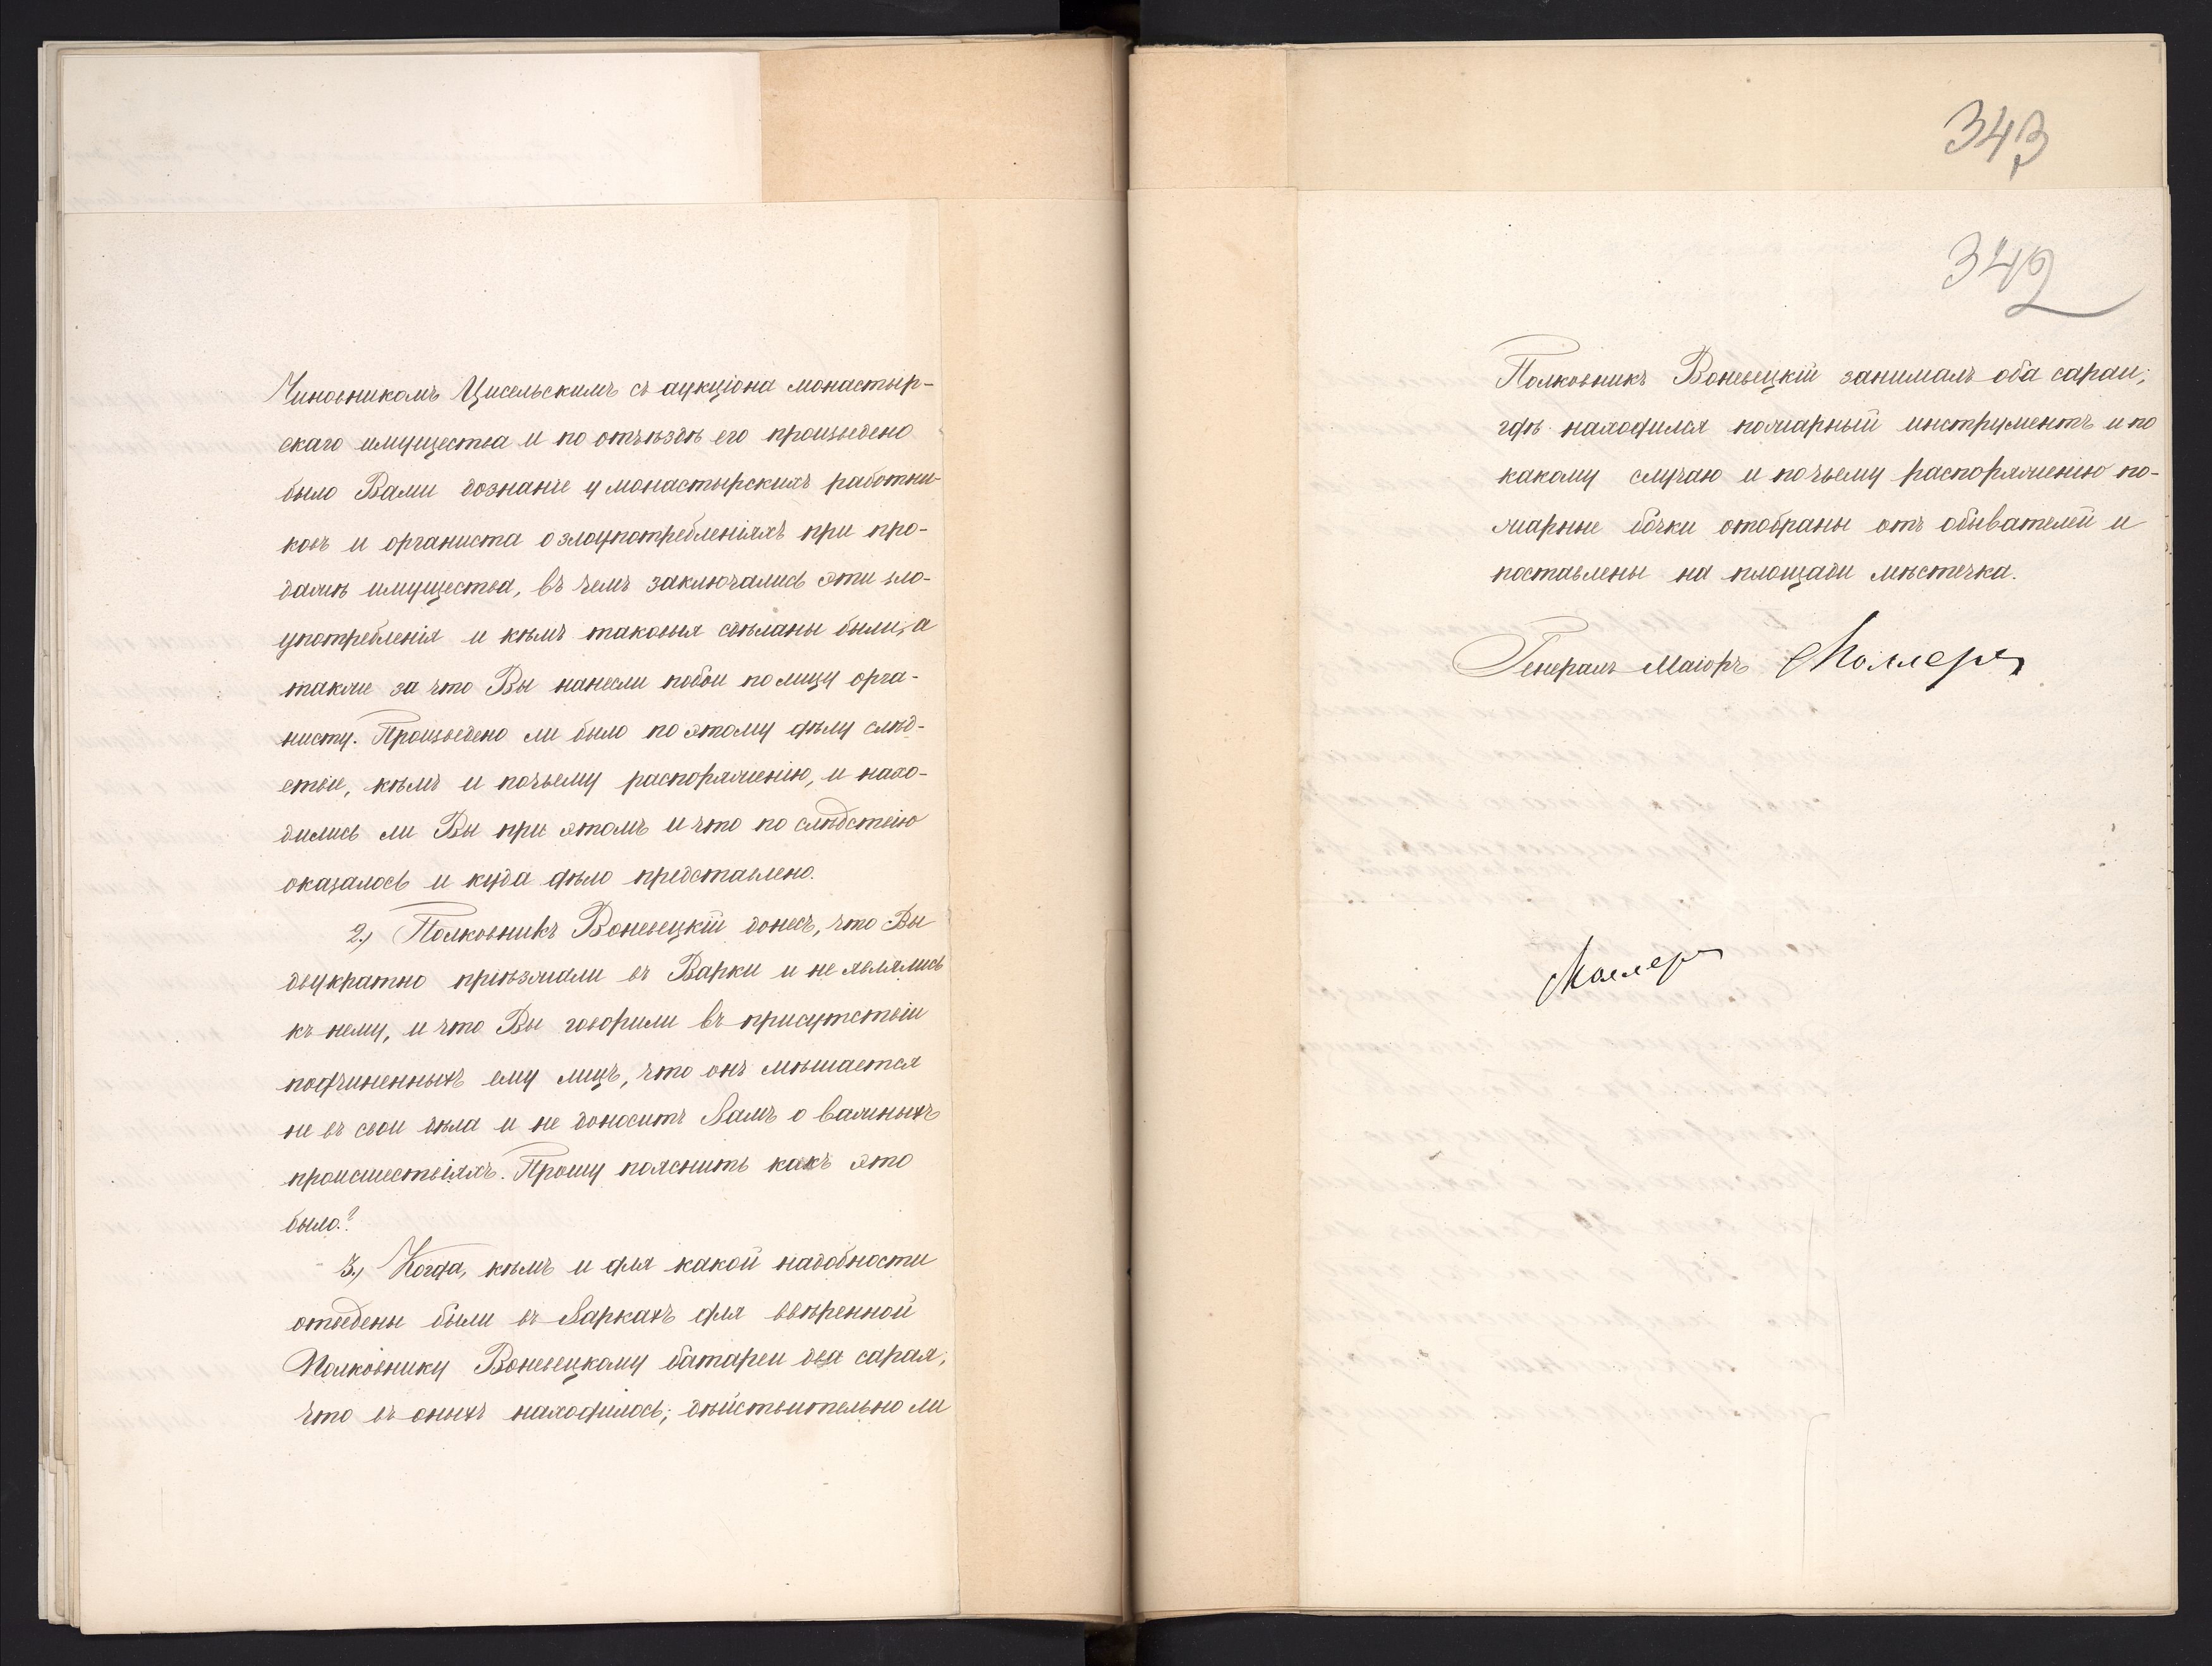 Чиновникомъ Цисельскимъ съ аукціона монастыр-
скаго имущества и по отъѣздѣ его произведено
было Вами дознаніе у монастырскихъ работни-
ковъ и органиста о злоупотребленіяхъ при про-
дажѣ имущества, въ чемъ заключались эти зло-
употребленія и кѣмъ таковыя сдѣланы были, а
также за что Вы нанесли побои по лицу орга-
нисту. Произведено ли было по этому дѣлу слѣд-
ствіе, кѣмъ и по чьему распоряженію, и нахо-
дились ли Вы при этомъ и что по слѣдствію
оказалось и куда дѣло представлено.
2., Полковникъ Воневецкій донесъ, что Вы
двукратно пріѣзжали въ Варки и не являлись
къ нему, и что Вы говорили въ присутствіи
подчиненныхъ ему лицъ, что онъ мѣшается
не въ свои дѣла и не доноситъ Вамъ о важныхъ
происшествіяхъ. Прошу пояснить какъ это
было?
3., Когда, кѣмъ и для какой надобности
отведены были въ Варкахъ для ввѣренной
Полковнику Воневецкому батареи два сарая;
что въ оныхъ находилось; дѣйствительно ли
343
342
Полковникъ Воневецкій занималъ оба сараи;
гдѣ находился пожарный инструментъ и по
какому случаю и по чьему распоряженію по-
жарные бочки отобраны отъ обывателей и
поставлены на площади мѣстечка.
Генералъ Маіоръ Моллеръ
Моллеръ